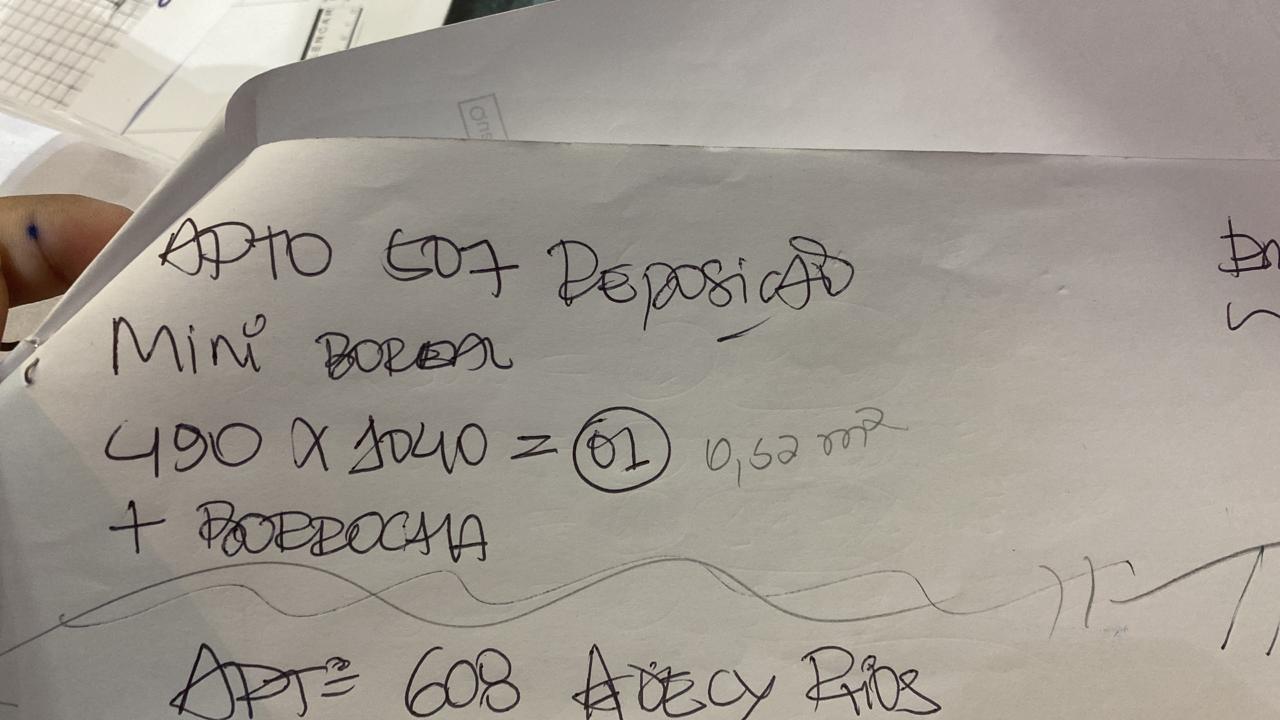 APTO 507 REPOSIÇÃO
Mini BOREAL
490 X 1040 = 01 0,52 m²
+ BORROCHA
APTº 608 Rios